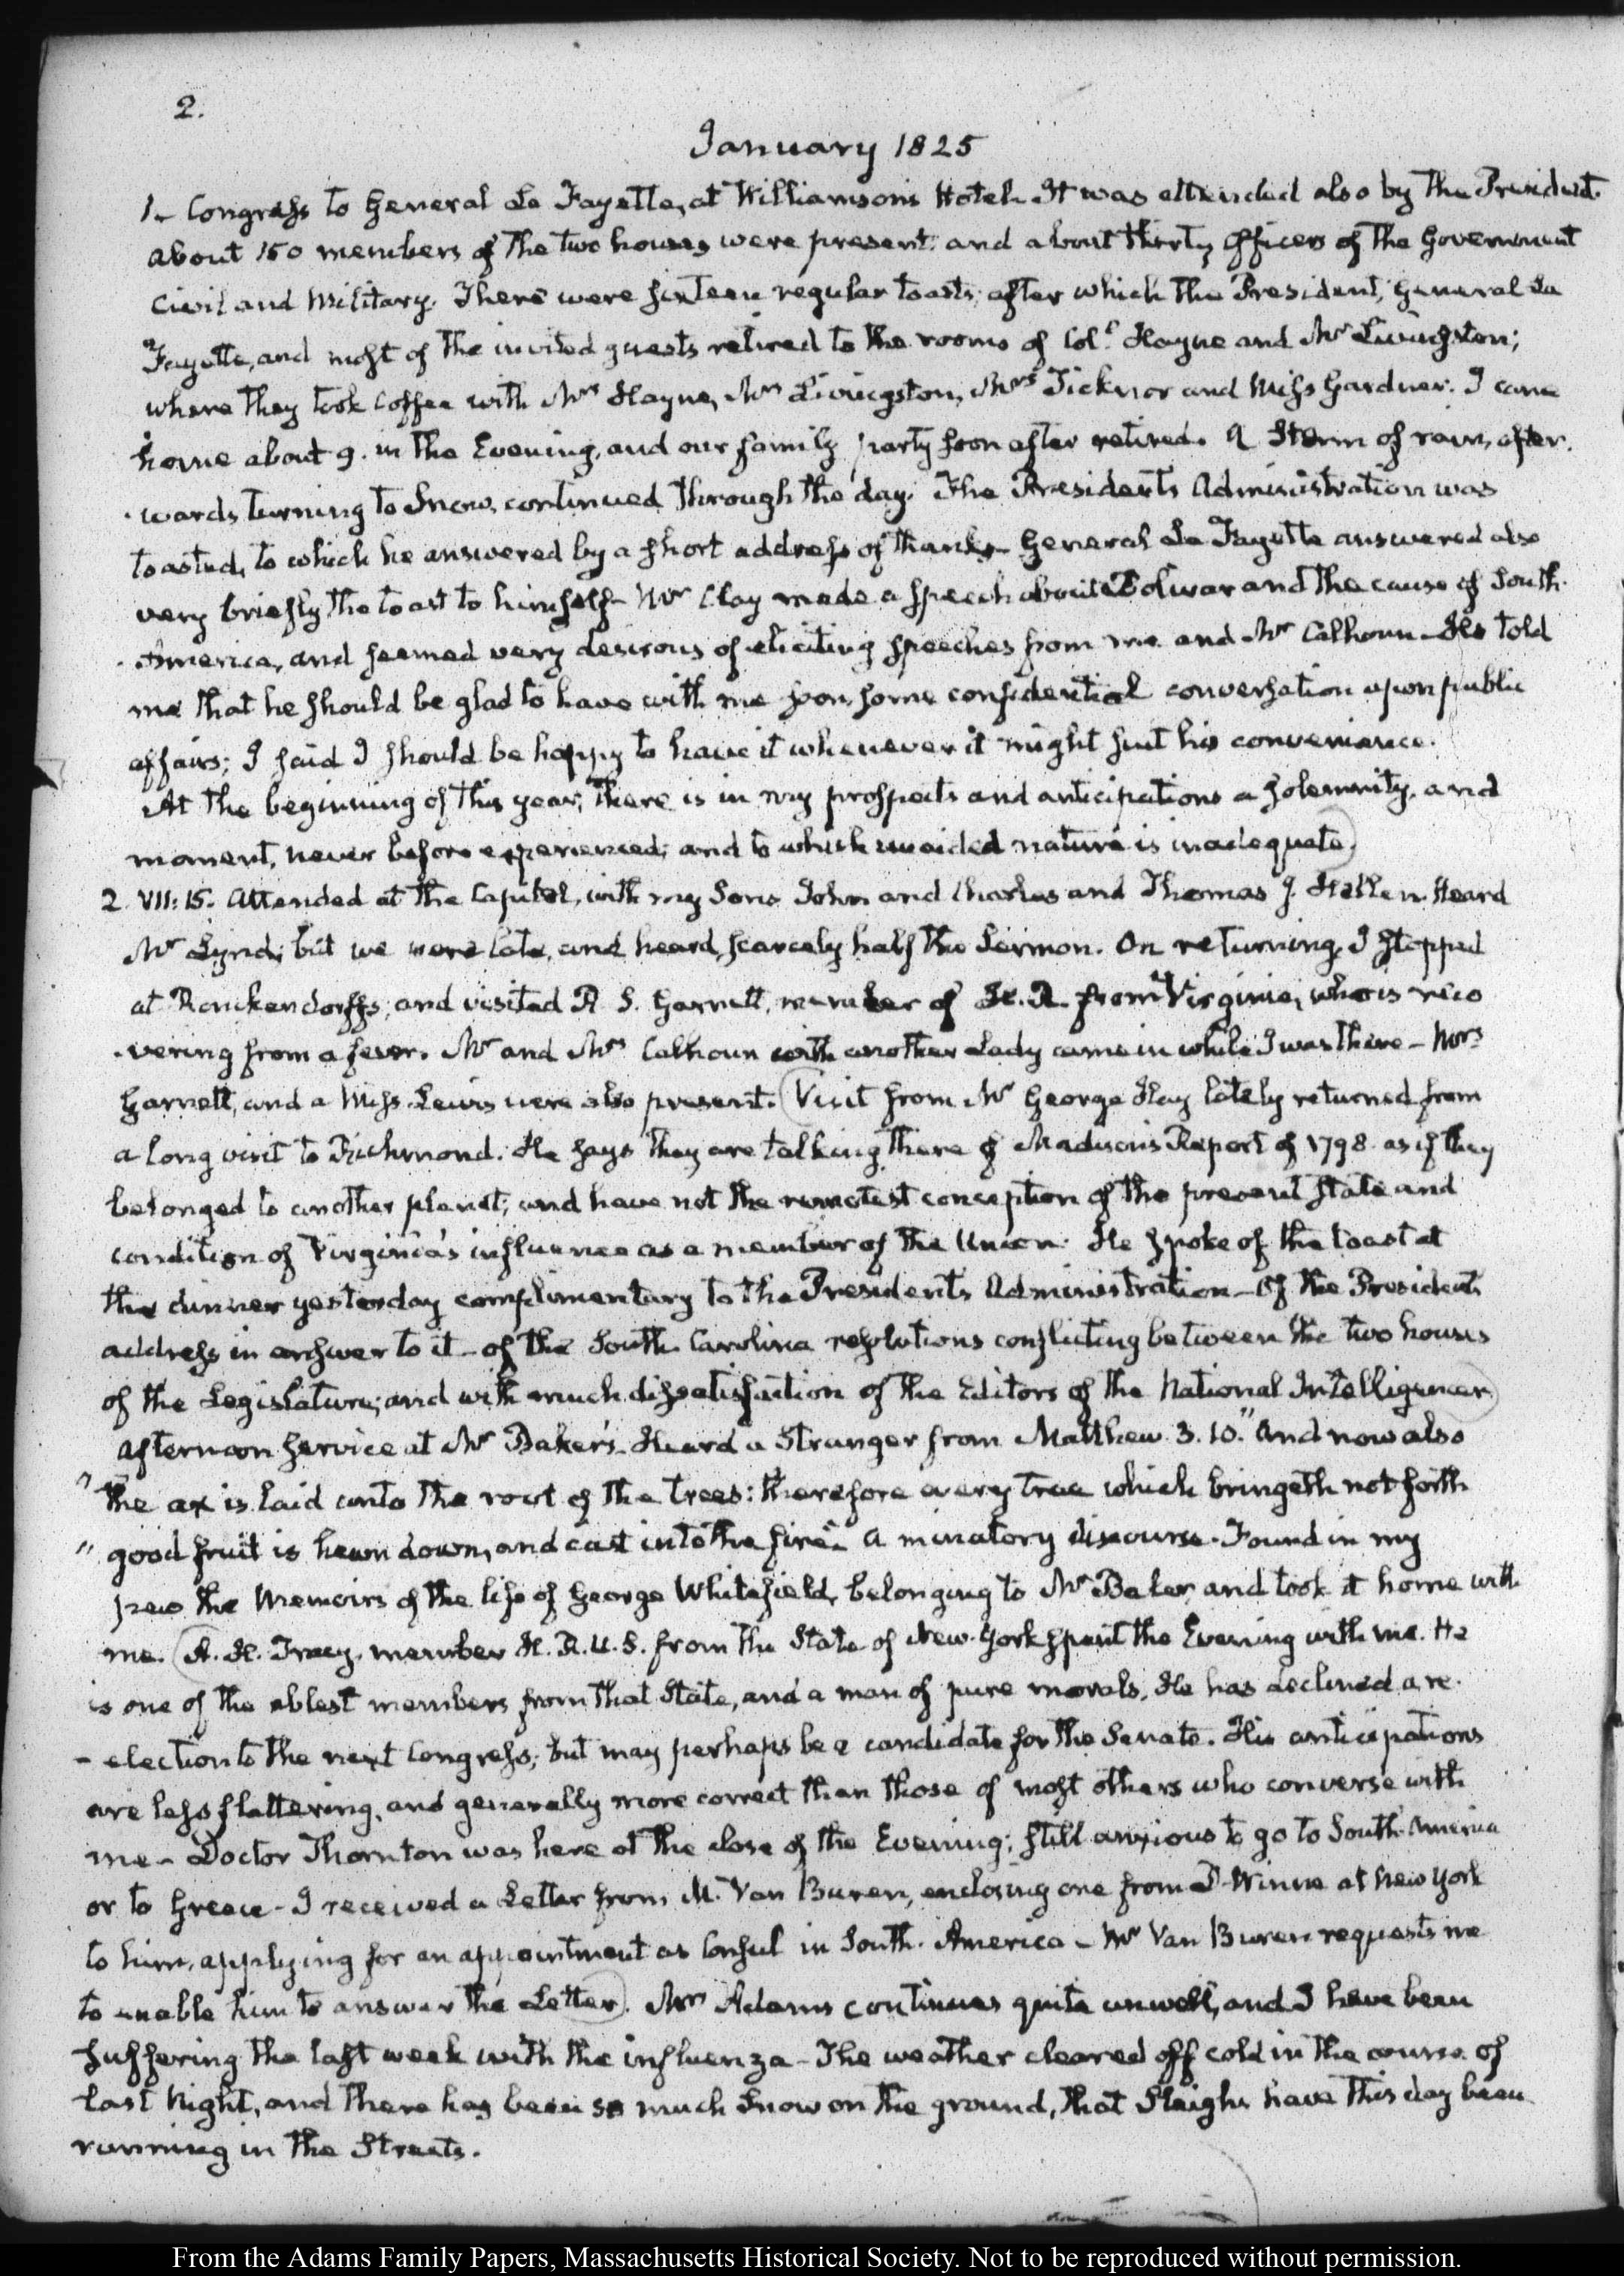 2.
January 1825
1. Congress to General La Fayette, at Williamson's Hotel. It was attended also by the President.
about 150 members of the two houses were present: and about thirty officers of the Government
Civil and Military. There were sixteen regular toasts; after which the President, General La
Fayette, and most of the invited guests retired to the rooms of Col.l Hayne and Mr Livingston;
where they took Coffee with Mrs Hayne, Mrs Livingston, Mrs Ticknor and Miss Gardner. I came
home about 9. in the Evening, and our family party soon after retired. A Storm of rain, after-
-wards turning to Snow, continued through the day. The President's Administration was
toasted, to which he answered by a short address of thanks- General La Fayette answered also
very briefly the toast to himself- Mr Clay made a speech about Bolivar and the cause of South-
-America, and seemed very desirous of eliciting speeches from me and Mr Calhoun- He told
me that he should be glad to have with me soon, some confidential conversation upon public
affairs; I said I should be happy to have it whenever it might suit his convenience.
At the beginning of this year, there is in my prospects and anticipations a solemnity, and
moment, never before experienced; and to which unaided nature is inadequate.)
2. VII:15. Attended at the Capitol, with my Sons John and Charles and Thomas J. Hellen. Heard
Mr Lynd; but we were late, and heard, scarcely half the Sermon. On returning, I stopped
at Ronckendorff's; and visited R. S. Garnett, member of H. R. from Virginia, who is reco
-vering from a fever. Mr and Mrs Calhoun with another Lady came in while I was there- Mrs
Garnett, and a Miss Lewis were also present. (Visit from Mr George Hay lately returned from
a long visit to Richmond. He says they are talking there of Madison's Report of 1798. as if they
belonged to another planet; and have not the remotest conception of the present State and
condition of Virginia's influence as a member of the Union. He spoke of the toast at
the dinner yesterday complimentary to the President's Administration- Of the President's
address in answer to it- of the South-Carolina resolutions conflicting between the two houses
of the Legislature; and with much dissatisfaction of the Editors of the National Intelligencer.)
afternoon service at Mr Baker's- Heard a Stranger from Matthew 3. 10." And now also
" the ax is laid unto the root of the trees: therefore every tree which bringeth not forth
" good fruit is hewn down, and cast into the fire"- A minatory discourse. Found in my
pew the Memoirs of the life of George Whitefield, belonging to Mr Baker, and took it home with
me. (A. H. Tracy, member H. R. U. S. from the State of New-York spent the Evening with me. He
is one of the ablest members from that State, and a man of pure morals. He has declined a re-
-election to the next Congress; but may perhaps be a candidate for the Senate. His anticipations
are less flattering, and generally more correct than those of most others who converse with
me- Doctor Thornton was here at the close of the Evening; still anxious to go to South-America
or to Greece- I received a Letter from M. Van Buren, enclosing one from Winne at New York
to him, applying for an appointment as Consul in South-America- Mr Van Buren requests me
to enable him to answer the Letter). Mrs Adams continues quite unwell, and I have been
suffering the last week with the influenza- The weather cleared off cold in the course of
last Night, and there has been so much Snow on the ground, that Sleighs have this day been
running in the Streets.
From the Adams Family Papers, Massachusetts Historical Society. Not to be reproduced without permission.